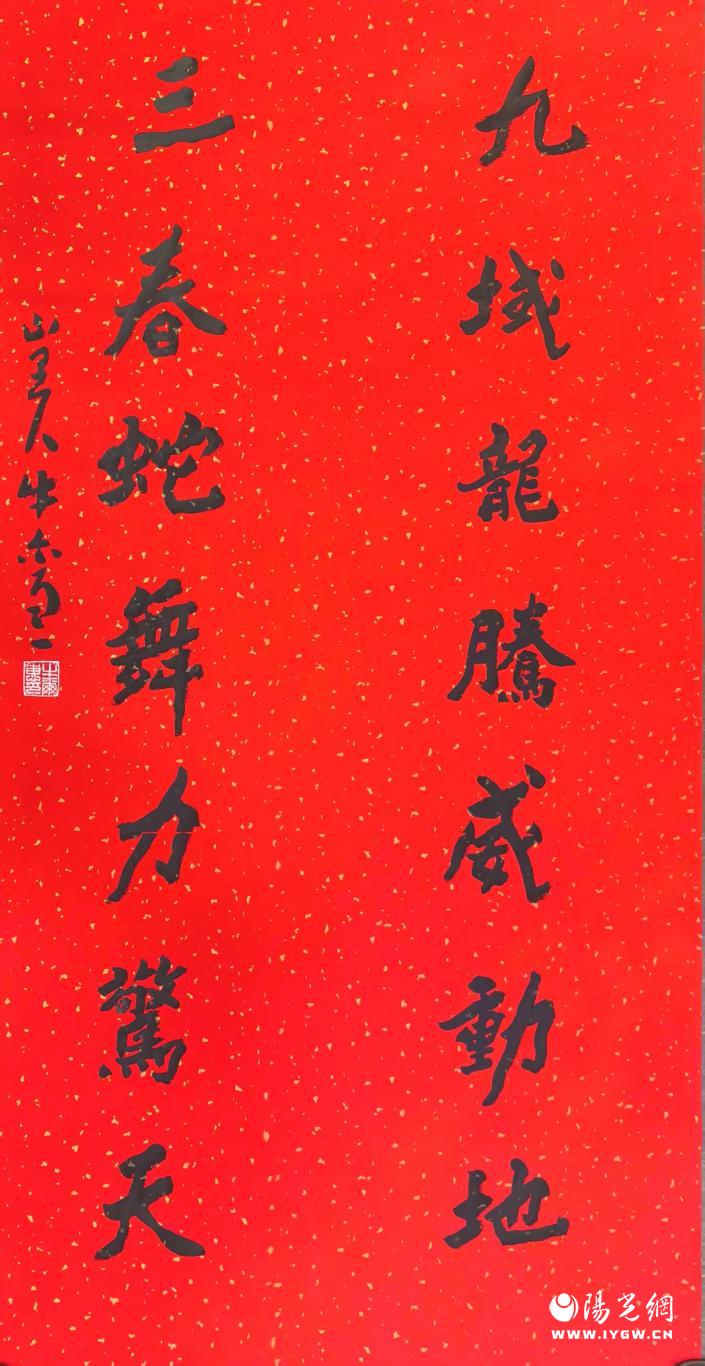 九域龍騰威動地
三春蛇舞力驚天
山里人牛
陽光網
WWW.IYGW.CN